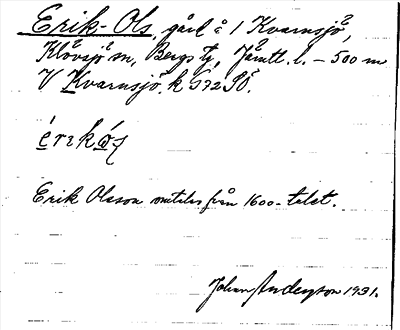 Erik-Ols, gård å 1 Kvarnsjö,
Klövsjö sn, Bergs tg, Jämtl. l. – 500 m
V Kvarnsjö. k 572 SO.
Erik Olsson från 1600-talet.
Johan Anderson 1931.